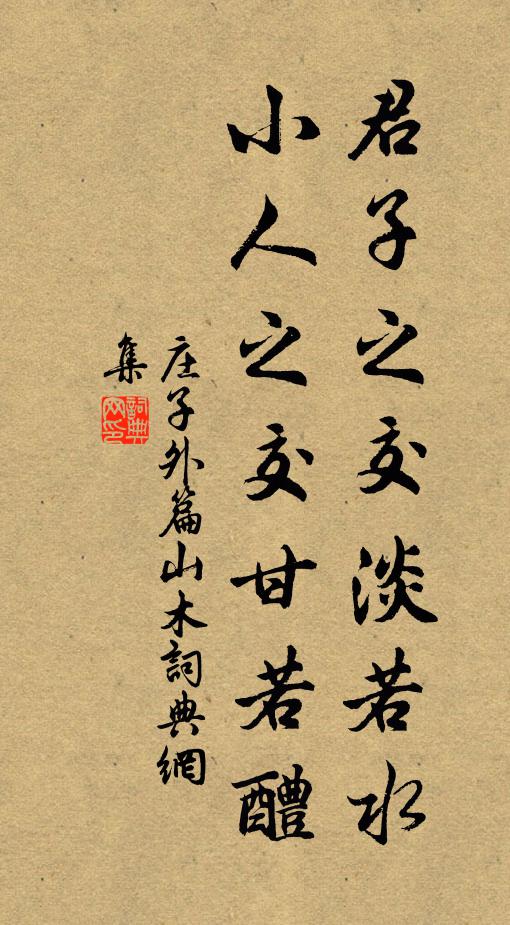 君子之交淡若水
小人之交甘若醴
庄子外篇山木詞典網
集
詞典
网印